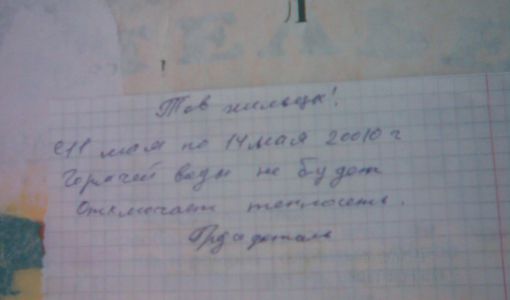 Л
Тов жильцы!
с 11 мая по 14 мая 20010 г
Горячей воды не будет
Отключает теплосеть.